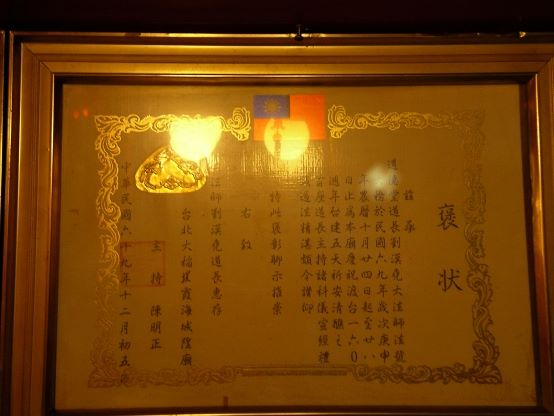 褒狀
茲承
道長劉漢堯大法師法號
於民國六九年歲次庚申
年農曆十月廿四日起至廿八
日止為本廟慶祝渡台一六〇
週年台建五天祈安清醮之
道長主持諸科儀宣經禮
道法精湛頗令讚仰
特此褒彰聊示推崇
右致
法師劉漢堯道長惠存
台北大稻埕霞海城隍廟
主持 陳明正
中華民國六十九年十二月初五